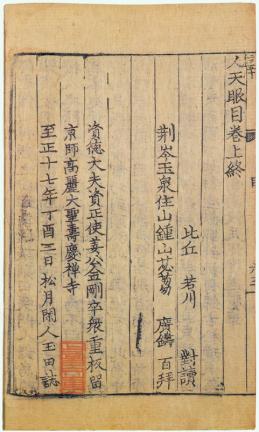 人天眼目卷上終
比丘 若川 對讀
荆岑玉泉住山鍾山苾蒭 廣鑄 百拜
資德大夫資正使姜公金剛卒衆重板留
京師高麗大聖壽慶禪寺
至正十七年丁酉三日松月閑人玉田誌